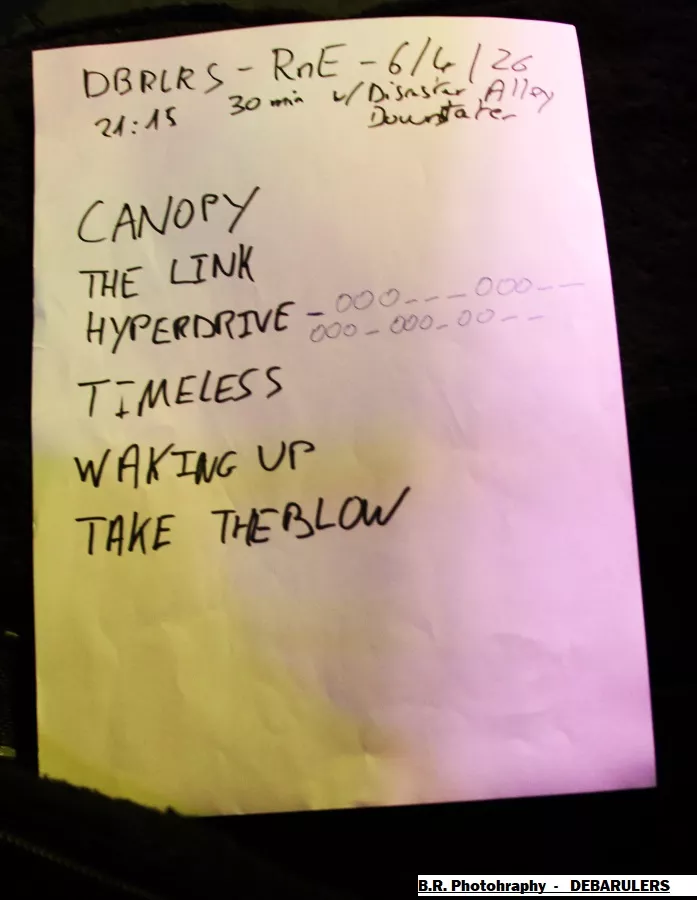 DBRLRS - RnE - 6/4/26
21:15 30 min w/ Disaster Alley
Downstater
CANOPY
THE LINK
HYPERDRIVE - 000---000--
000-000-00--
TIMELESS
WAKING UP
TAKE THE BLOW
B.R. Photohraphy - DEBARULERS